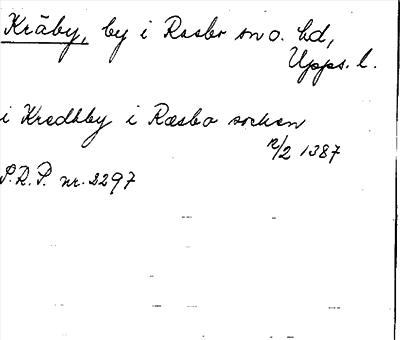 Kråby, by i Rasbo sn o. hd,
Upps. l.
i Kredhby i Ræsbo socken
12/2 1387
S.R.P. nr. 2297